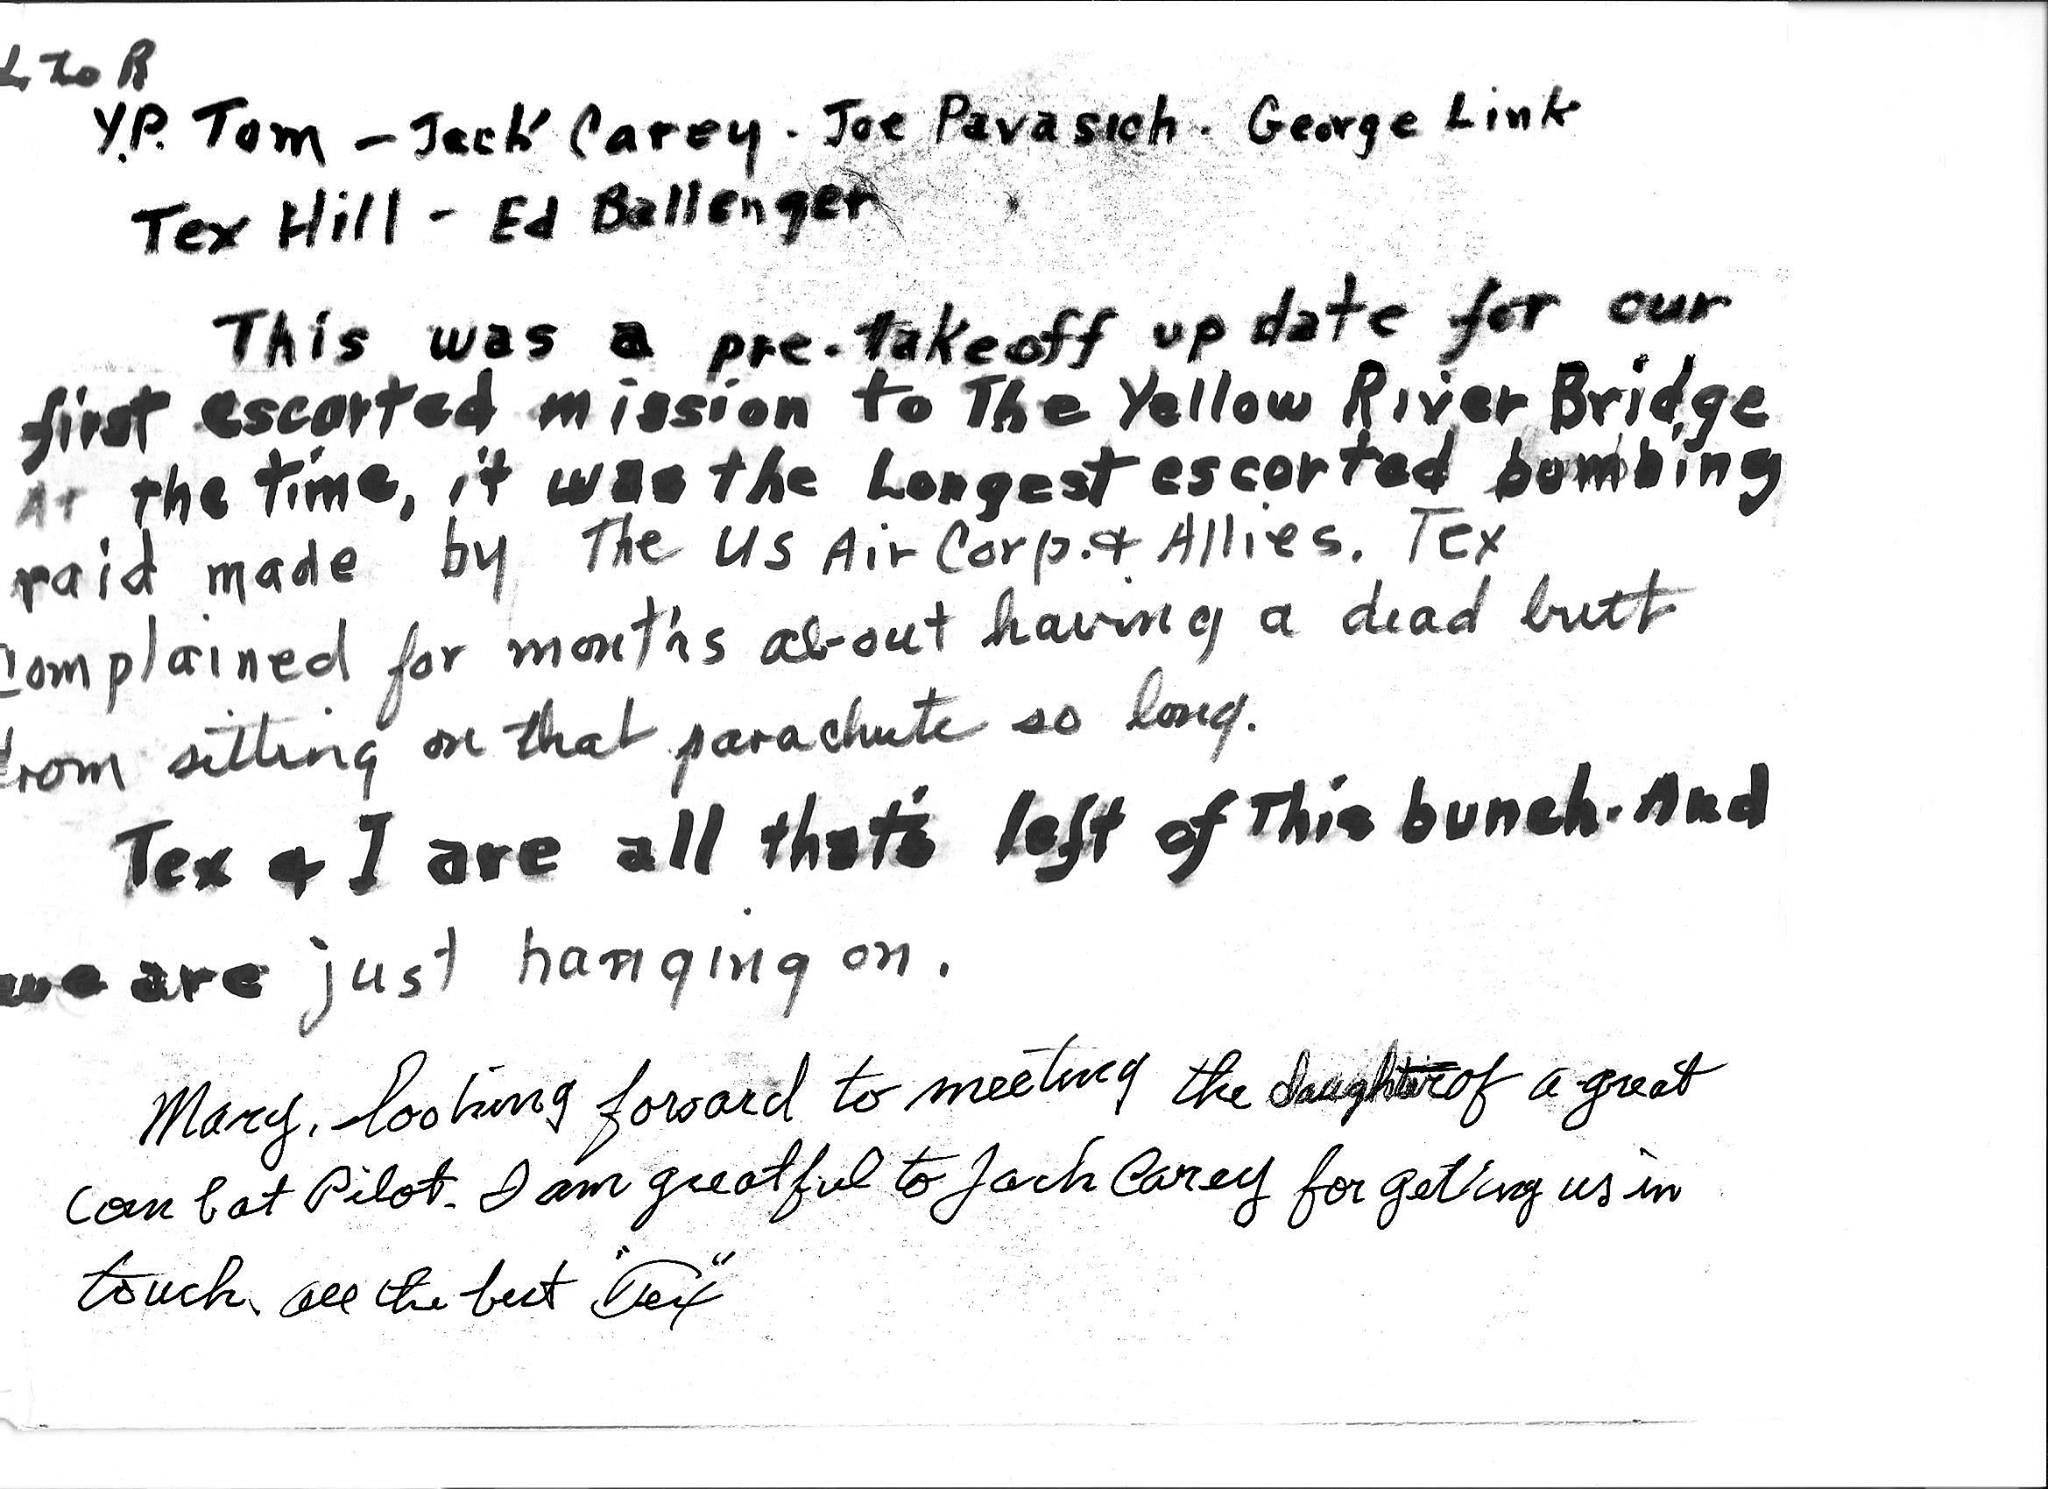 L to R
Y.P. Tom - Jack Carey. Joe Pavasich. George Link
Tex Hill - Ed Ballenger
This was a pre-takeoff up date for our
first escorted mission to The Yellow River Bridge
At the time, it was the Longest escorted bombing
raid made by The US Air Corp. & Allies. Tex
Complained for months about having a dead butt
from sitting on that parachute so long.
Tex & I are all that's left of This bunch. And
we are just hanging on.
Mary, looking forward to meeting the daughter of a great
combat Pilot. I am greatful to Jack Carey for getting us in
touch. all the best "Tex"